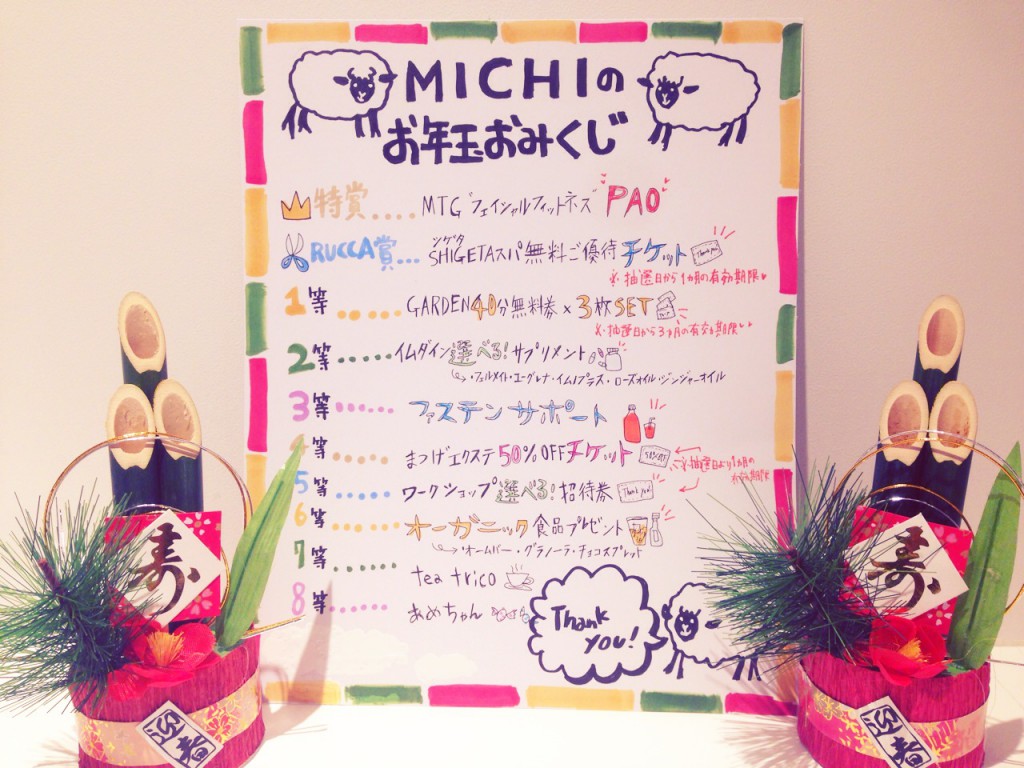 MICHIの
お年玉おみくじ
特賞.... MTG フェイシャルフィットネス"PAO"
RUCCA賞... SHIGETAスパ無料ご優待チケット Thank you
シゲタ
※抽選日から1カ月の有効期限
1等..... GARDEN40分無料券×3枚SET
※抽選日から3ヶ月の有効期限
2等...... イムダイン選べる!サプリメント
・フルメイト・エーグレナ・イムノプラス・ローズオイル・ジンジャーオイル
3等...... ファステンサポート
4等..... まつげエクステ50%OFFチケット
※抽選日より1カ月の
有効期限
5等..... ワークショップ選べる!招待券 Thank you!
6等...... オーガニック食品プレゼント
・オームバー・グラノーラ・チョコスプレット
7等...... tea trico
8等...... あめちゃん
Thank
you!
寿
迎春
寿
迎春